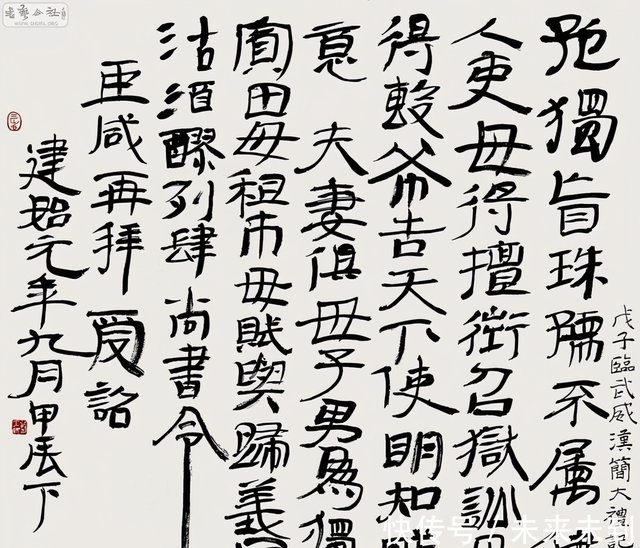 孤獨盲珠孺不属
人吏毋得擅徵召獄訟
得毄布告天下使明知
意 夫妻俱毋子男為獨
田毋租市毋賦與歸義
沽酒醪列肆尚書令
臣咸再拜受詔
建始元年九月甲辰下
戊子臨武威漢簡大禮記
快传号 未来未